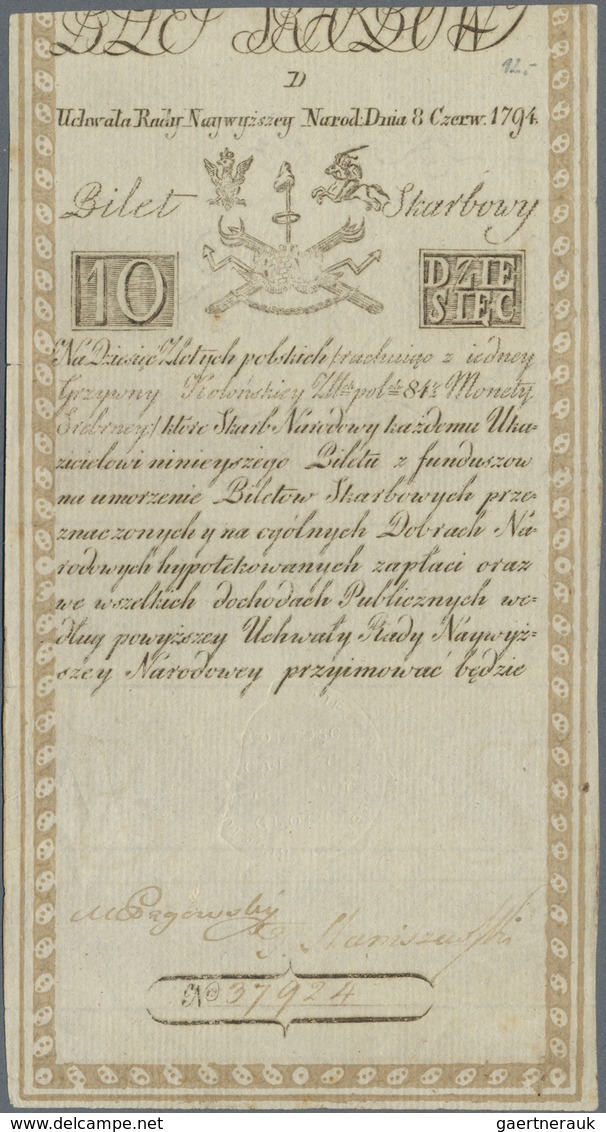 BILET SKARBOWY
D
Uchwała Rady Naywyższey Narod: Dnia 8 Czerw. 1794.
Bilet Skarbowy
10 DZIE
SIĘC
Na Dziesięć Złotych polskich /rachuiąc z iedney
Grzywny Kolońskiey Złł. pol. 84½ Monety
Srebrney/ które Skarb Narodowy każdemu Uka-
zicielowi ninieyszego Biletu z funduszow
na umorzenie Biletow Skarbowych prze-
znaczonych y na ogólnych Dobrach Na-
rodowych hypotekowanych zapłaci oraz
we wszelkich dochodach Publicznych we-
dług powyższey Uchwały Rady Naywyż-
szey Narodowey przyimować będzie
No 37924
delcampe.net
gaertnerauk